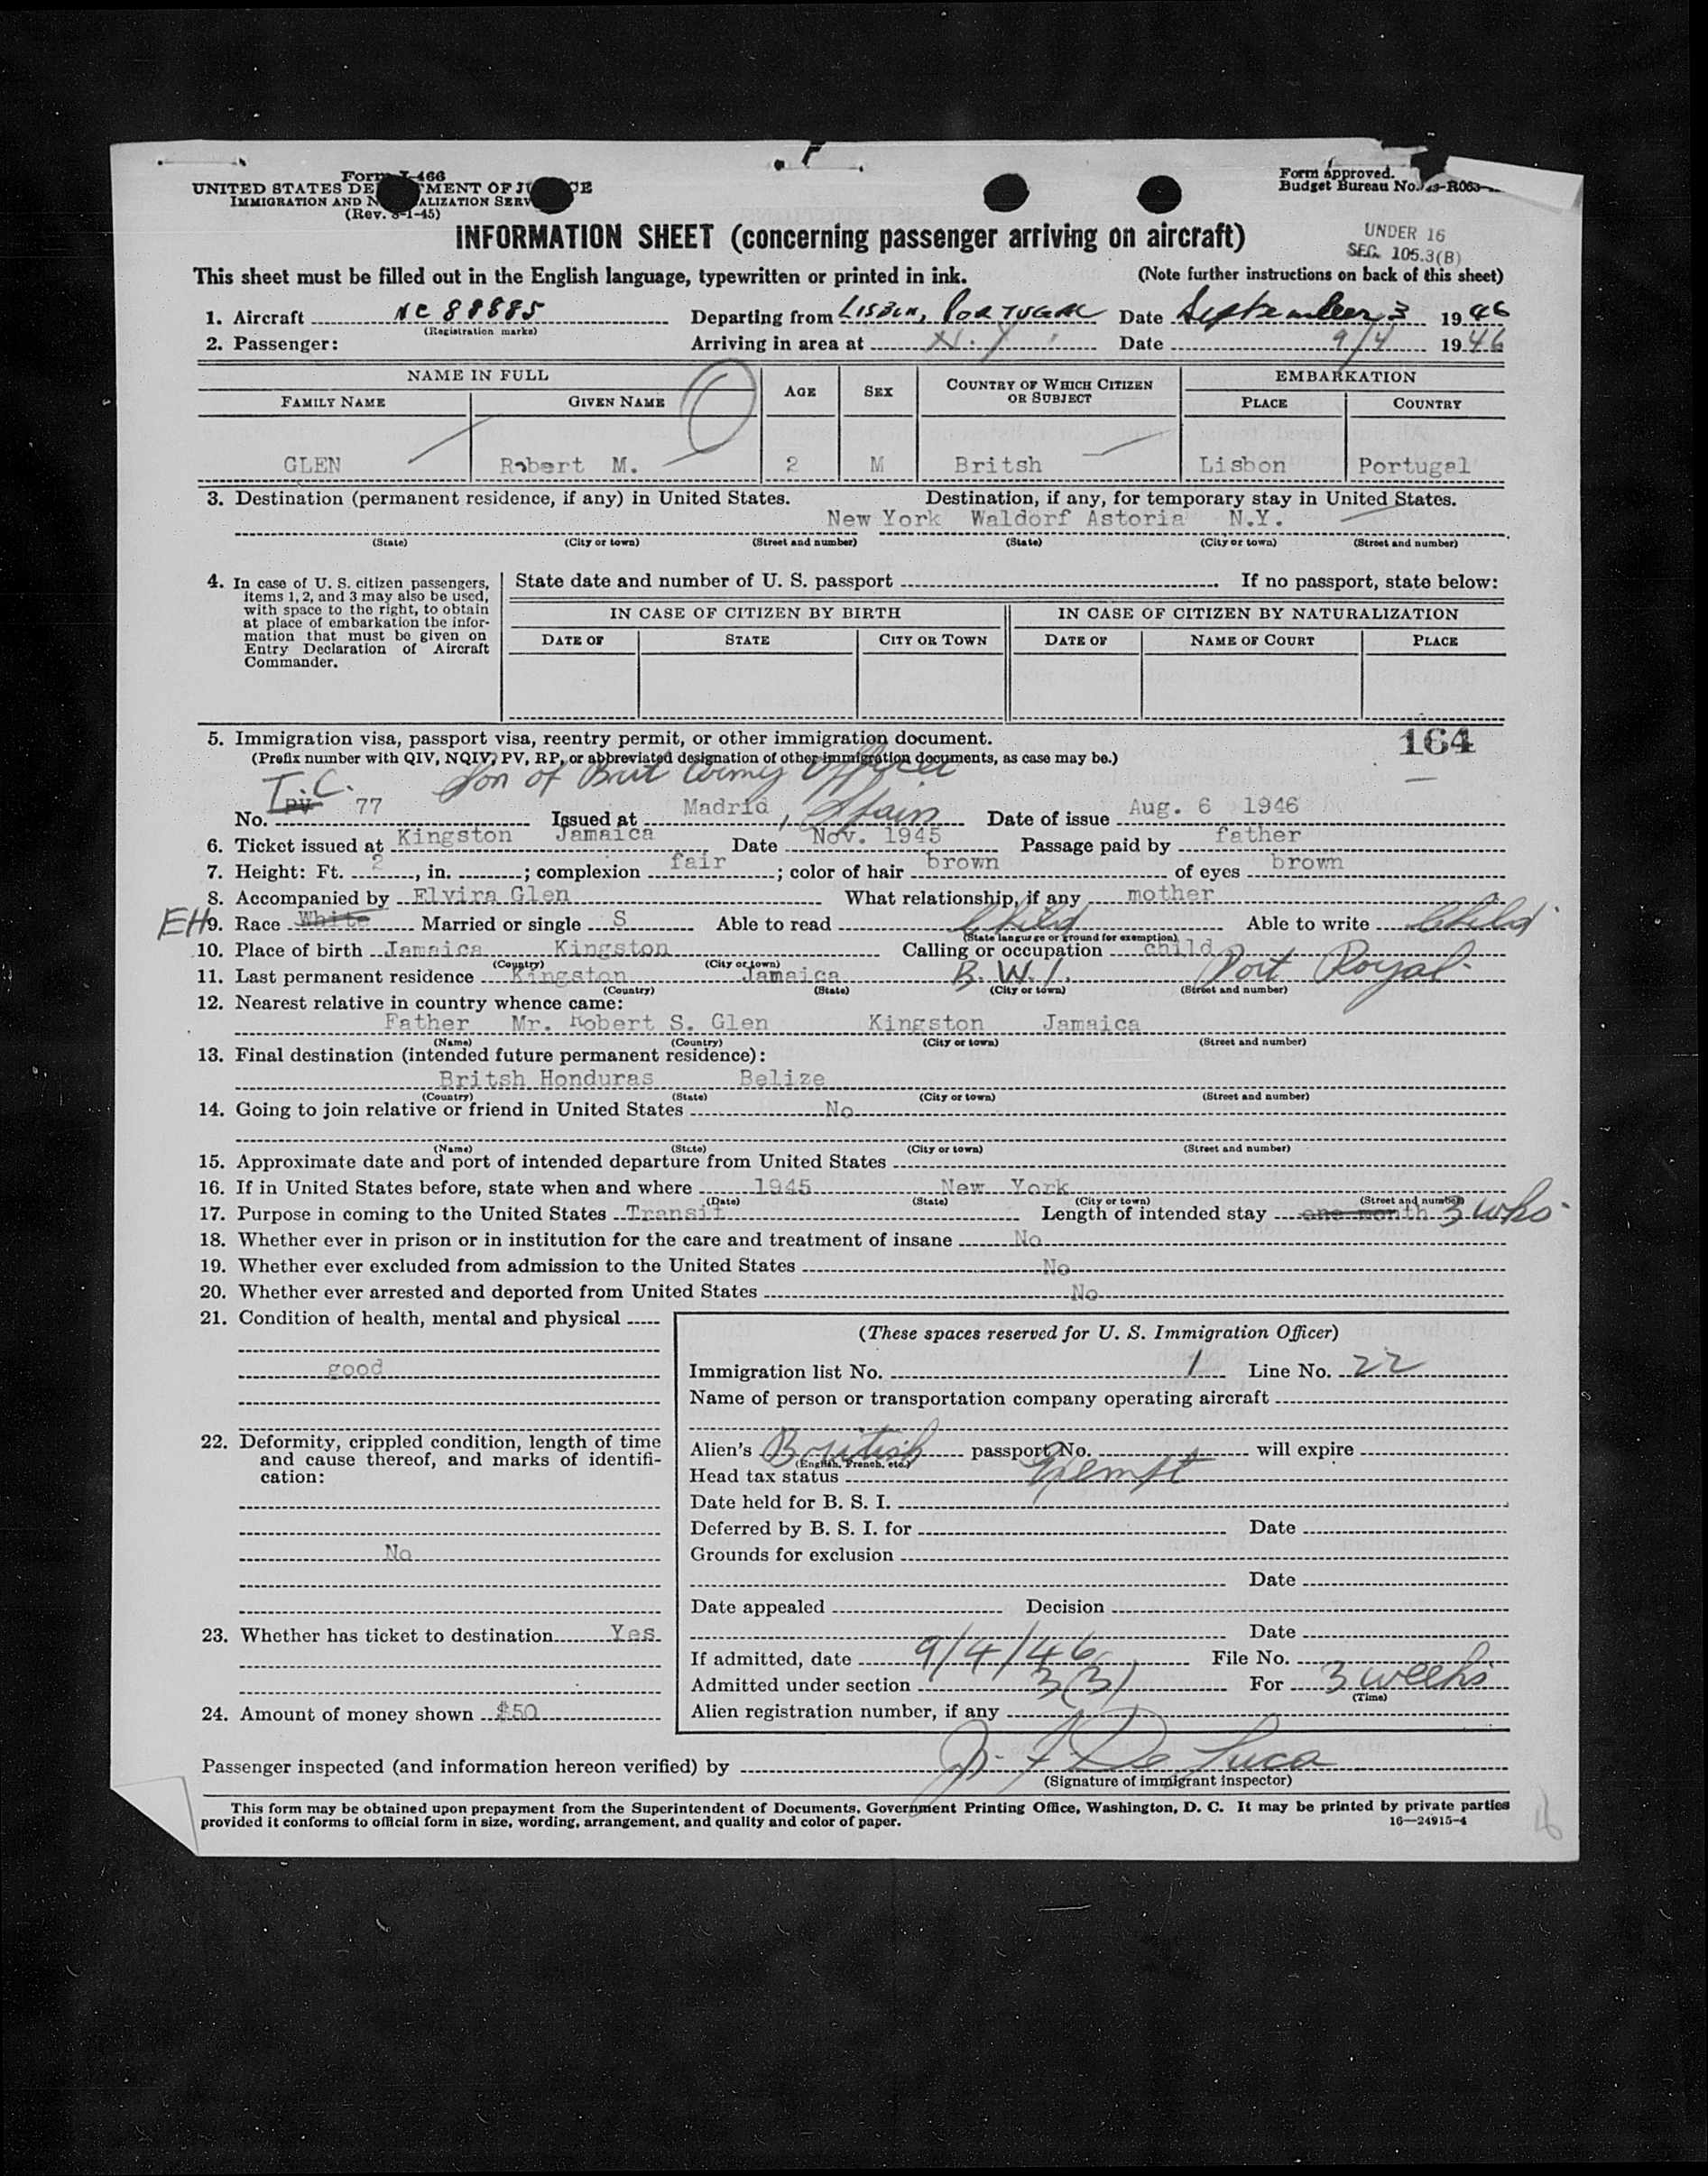 Form I-466
UNITED STATES DEPARTMENT OF JUSTICE
IMMIGRATION AND NATURALIZATION SERVICE
(Rev. 8-1-45)
Form approved.
Budget Bureau No.
INFORMATION SHEET (concerning passenger arriving on aircraft)
UNDER 16
SEC. 105.3(B)
This sheet must be filled out in the English language, typewritten or printed in ink. (Note further instructions on back of this sheet)
1. Aircraft NC 88885 Departing from LISBON, PORTUGAL Date September 3 1946
(Registration marks)
2. Passenger: Arriving in area at N.Y. Date 9/4 1946
NAME IN FULL AGE SEX COUNTRY OF WHICH CITIZEN OR SUBJECT EMBARKATION
FAMILY NAME GIVEN NAME PLACE COUNTRY
GLEN Robert M. 2 M Britsh Lisbon Portugal
3. Destination (permanent residence, if any) in United States. Destination, if any, for temporary stay in United States.
New York Waldorf Astoria N.Y.
(State) (City or town) (Street and number) (State) (City or town) (Street and number)
4. In case of U. S. citizen passengers, items 1, 2, and 3 may also be used, with space to the right, to obtain at place of embarkation the information that must be given on Entry Declaration of Aircraft Commander.
State date and number of U. S. passport If no passport, state below:
IN CASE OF CITIZEN BY BIRTH IN CASE OF CITIZEN BY NATURALIZATION
DATE OF STATE CITY OR TOWN DATE OF NAME OF COURT PLACE
5. Immigration visa, passport visa, reentry permit, or other immigration document. 164
(Prefix number with QIV, NQIV, PV, RP, or abbreviated designation of other immigration documents, as case may be.)
T.C. Son of Brit Army Officer
No. PV 77 Issued at Madrid, Spain Date of issue Aug. 6 1946
6. Ticket issued at Kingston Jamaica Date Nov. 1945 Passage paid by father
7. Height: Ft. 2, in. ; complexion fair ; color of hair brown of eyes brown
8. Accompanied by Elvira Glen What relationship, if any mother
EH 9. Race White Married or single S Able to read Child Able to write Child
(State language or ground for exemption)
10. Place of birth Jamaica Kingston Calling or occupation child
(Country) (City or town)
11. Last permanent residence Kingston Jamaica B.W.I. Port Royal
(Country) (State) (City or town) (Street and number)
12. Nearest relative in country whence came:
Father Mr. Robert S. Glen Kingston Jamaica
(Name) (Country) (City or town) (Street and number)
13. Final destination (intended future permanent residence):
Britsh Honduras Belize
(Country) (State) (City or town) (Street and number)
14. Going to join relative or friend in United States No
(Name) (State) (City or town) (Street and number)
15. Approximate date and port of intended departure from United States
16. If in United States before, state when and where 1945 New York
(Date) (State) (City or town) (Street and number)
17. Purpose in coming to the United States Transit Length of intended stay one month 3 wks
18. Whether ever in prison or in institution for the care and treatment of insane No
19. Whether ever excluded from admission to the United States No
20. Whether ever arrested and deported from United States No
21. Condition of health, mental and physical
good
22. Deformity, crippled condition, length of time and cause thereof, and marks of identification:
No
23. Whether has ticket to destination Yes
24. Amount of money shown $50
(These spaces reserved for U. S. Immigration Officer)
Immigration list No. 1 Line No. 22
Name of person or transportation company operating aircraft
Alien's British passport No. will expire
(English, French, etc.)
Head tax status Exempt
Date held for B. S. I.
Deferred by B. S. I. for Date
Grounds for exclusion
Date
Date appealed Decision
Date
If admitted, date 9/4/46 File No.
Admitted under section 3(3) For 3 weeks
(Time)
Alien registration number, if any
Passenger inspected (and information hereon verified) by J. F. De Luca
(Signature of immigrant inspector)
This form may be obtained upon prepayment from the Superintendent of Documents, Government Printing Office, Washington, D. C. It may be printed by private parties
provided it conforms to official form in size, wording, arrangement, and quality and color of paper. 16—24915-4